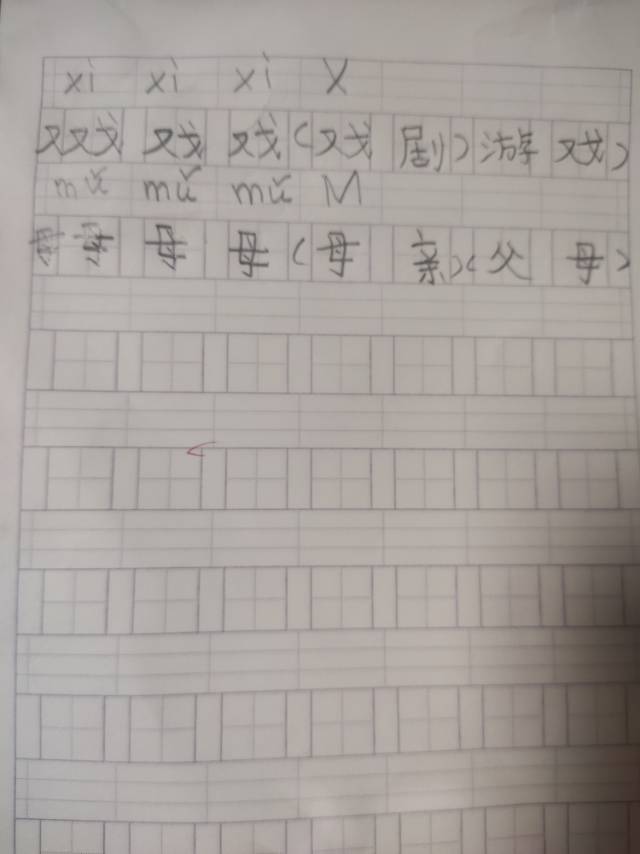 xì xì xì X
又戏 戏 戏(戏剧)游戏)
mǔ mǔ mǔ M
母 母(母亲)(父母)